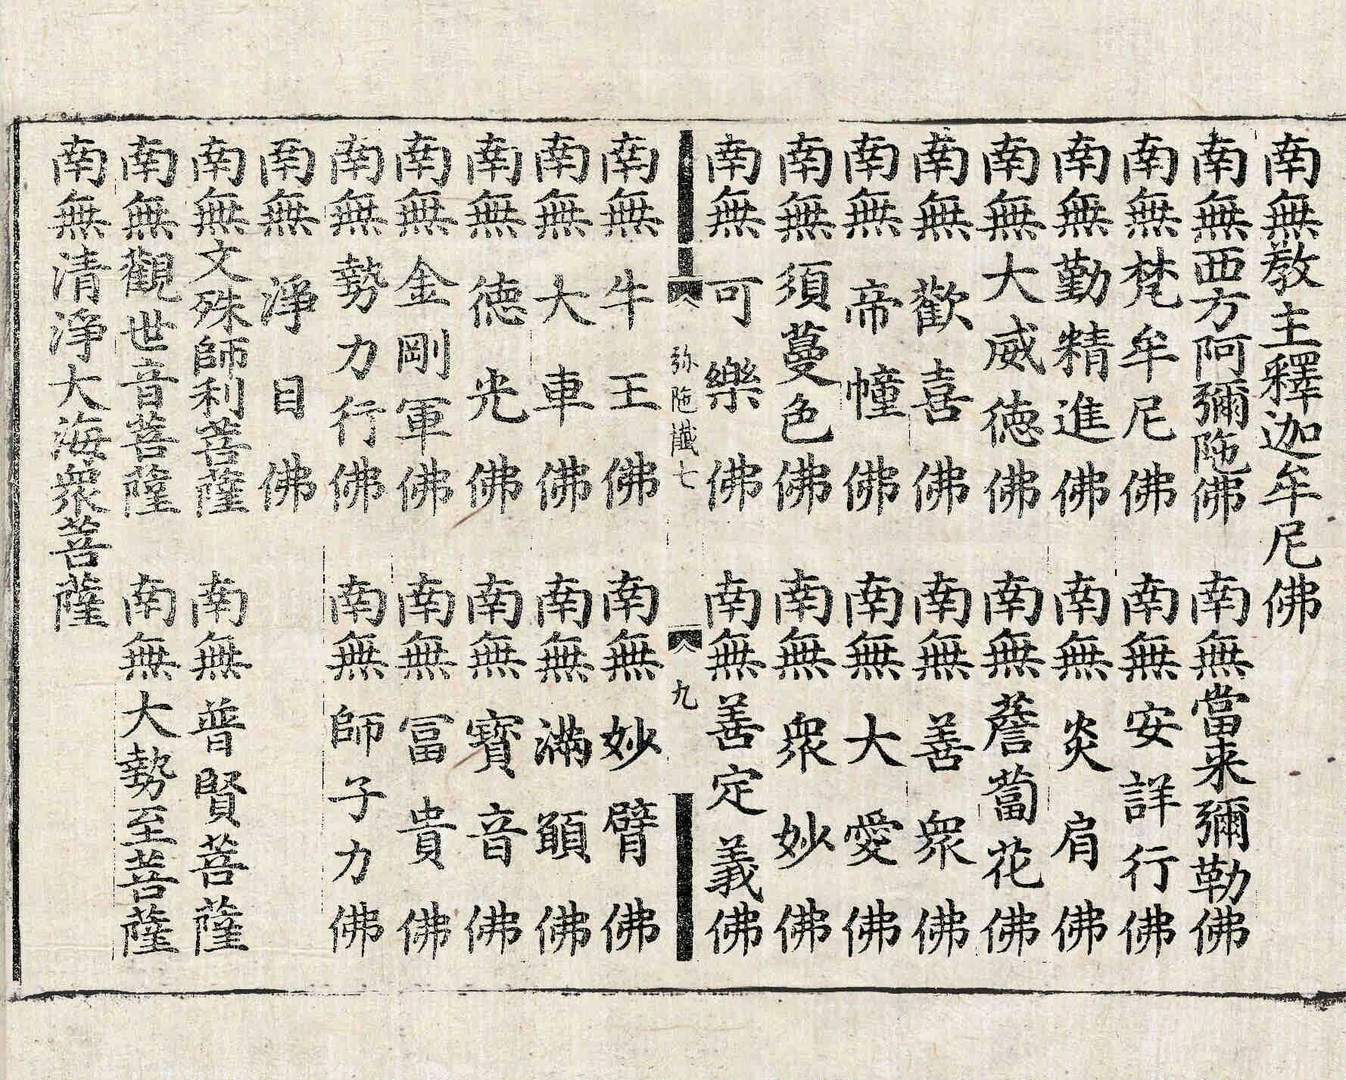 南無教主釋迦牟尼佛
南無西方阿彌陁佛　南無當来彌勒佛
南無梵牟尼佛　南無安詳行佛
南無勤精進佛　南無炎肩佛
南無大威德佛　南無薝蔔花佛
南無歡喜佛　南無善衆佛
南無帝幢佛　南無大愛佛
南無須蔓色佛　南無衆妙佛
南無可樂佛　南無善定義佛
弥陁懴七　九
南無牛王佛　南無妙臂佛
南無大車佛　南無滿願佛
南無德光佛　南無寶音佛
南無金剛軍佛　南無冨貴佛
南無勢力行佛　南無師子力佛
南無淨目佛
南無文殊師利菩薩　南無普賢菩薩
南無觀世音菩薩　南無大勢至菩薩
南無清淨大海衆菩薩